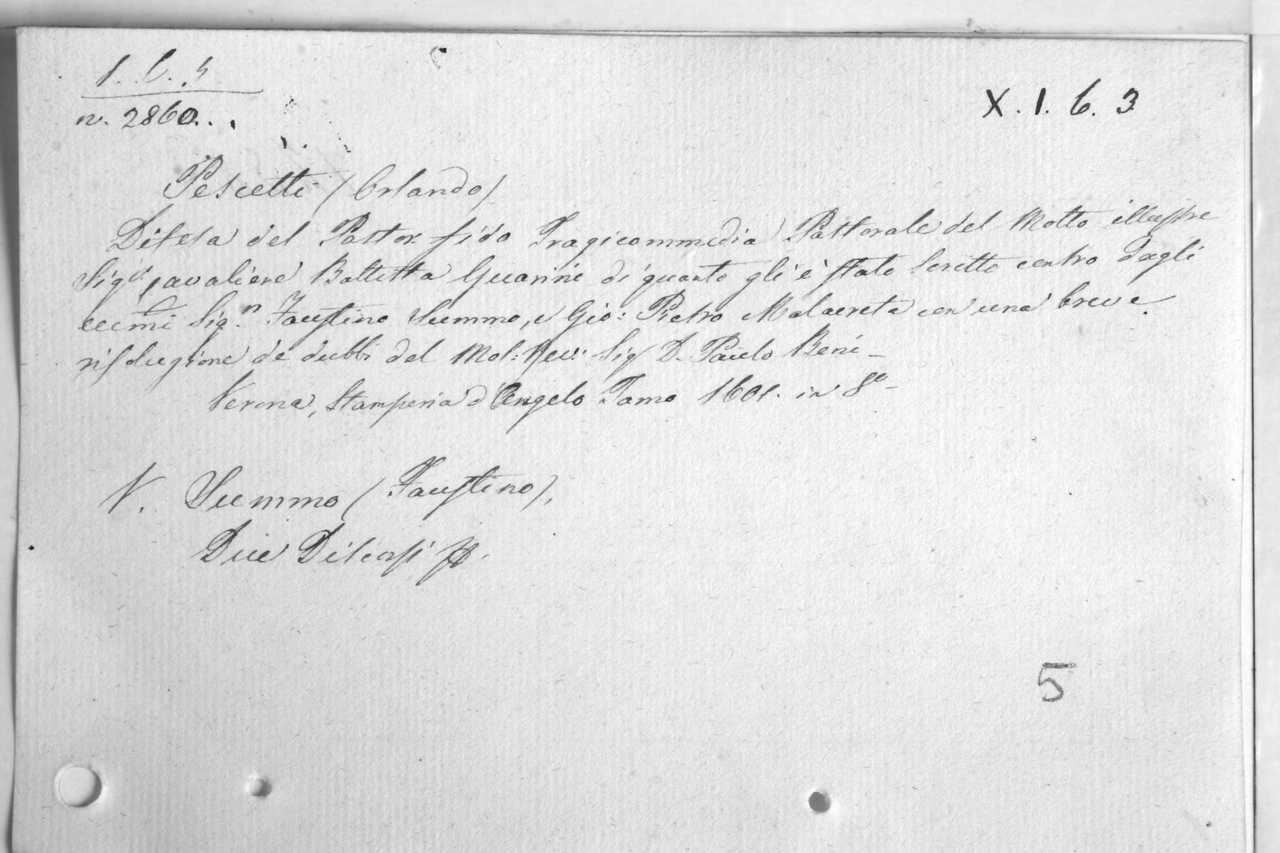 1. b. 4
n. 2860..
X. 1. 6. 3
Pescetti (Orlando)
Difesa del Pastor fido Tragicommedia Pastorale del Molto illustre
Sig.r cavaliere Battista Guarini di quanto gli è stato scritto contro dagli
eccmi Sig.ri Faustino Summo, e Gio: Pietro Malacreta con una breve
risoluzione de dubbi del Mol: Rev: Sig D. Paulo Beni –
Verona, Stamperia d'Angelo Tamo 1601. in 8° –
V. Summo (Faustino),
Due Discorsi
5